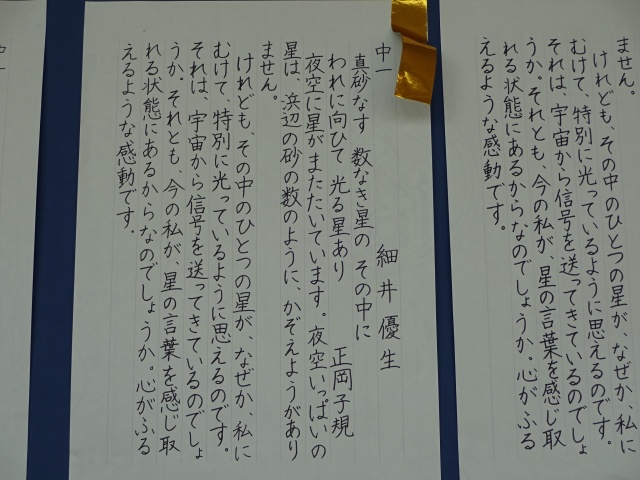 ません。
けれども、その中のひとつの星が、なぜか、私に
むけて、特別に光っているように思えるのです。
それは、宇宙から信号を送ってきているのでしょ
うか。それとも、今の私が、星の言葉を感じ取
れる状態にあるからなのでしょうか。心がふる
えるような感動です。
中一 細井優生
真砂なす 数なき星の その中に
われに向ひて 光る星あり 正岡子規
夜空に星がまたたいています。夜空いっぱいの
星は、浜辺の砂の数のように、かぞえようがあり
ません。
けれども、その中のひとつの星が、なぜか、私に
むけて、特別に光っているように思えるのです。
それは、宇宙から信号を送ってきているのでしょ
うか。それとも、今の私が、星の言葉を感じ取
れる状態にあるからなのでしょうか。心がふる
えるような感動です。
中一